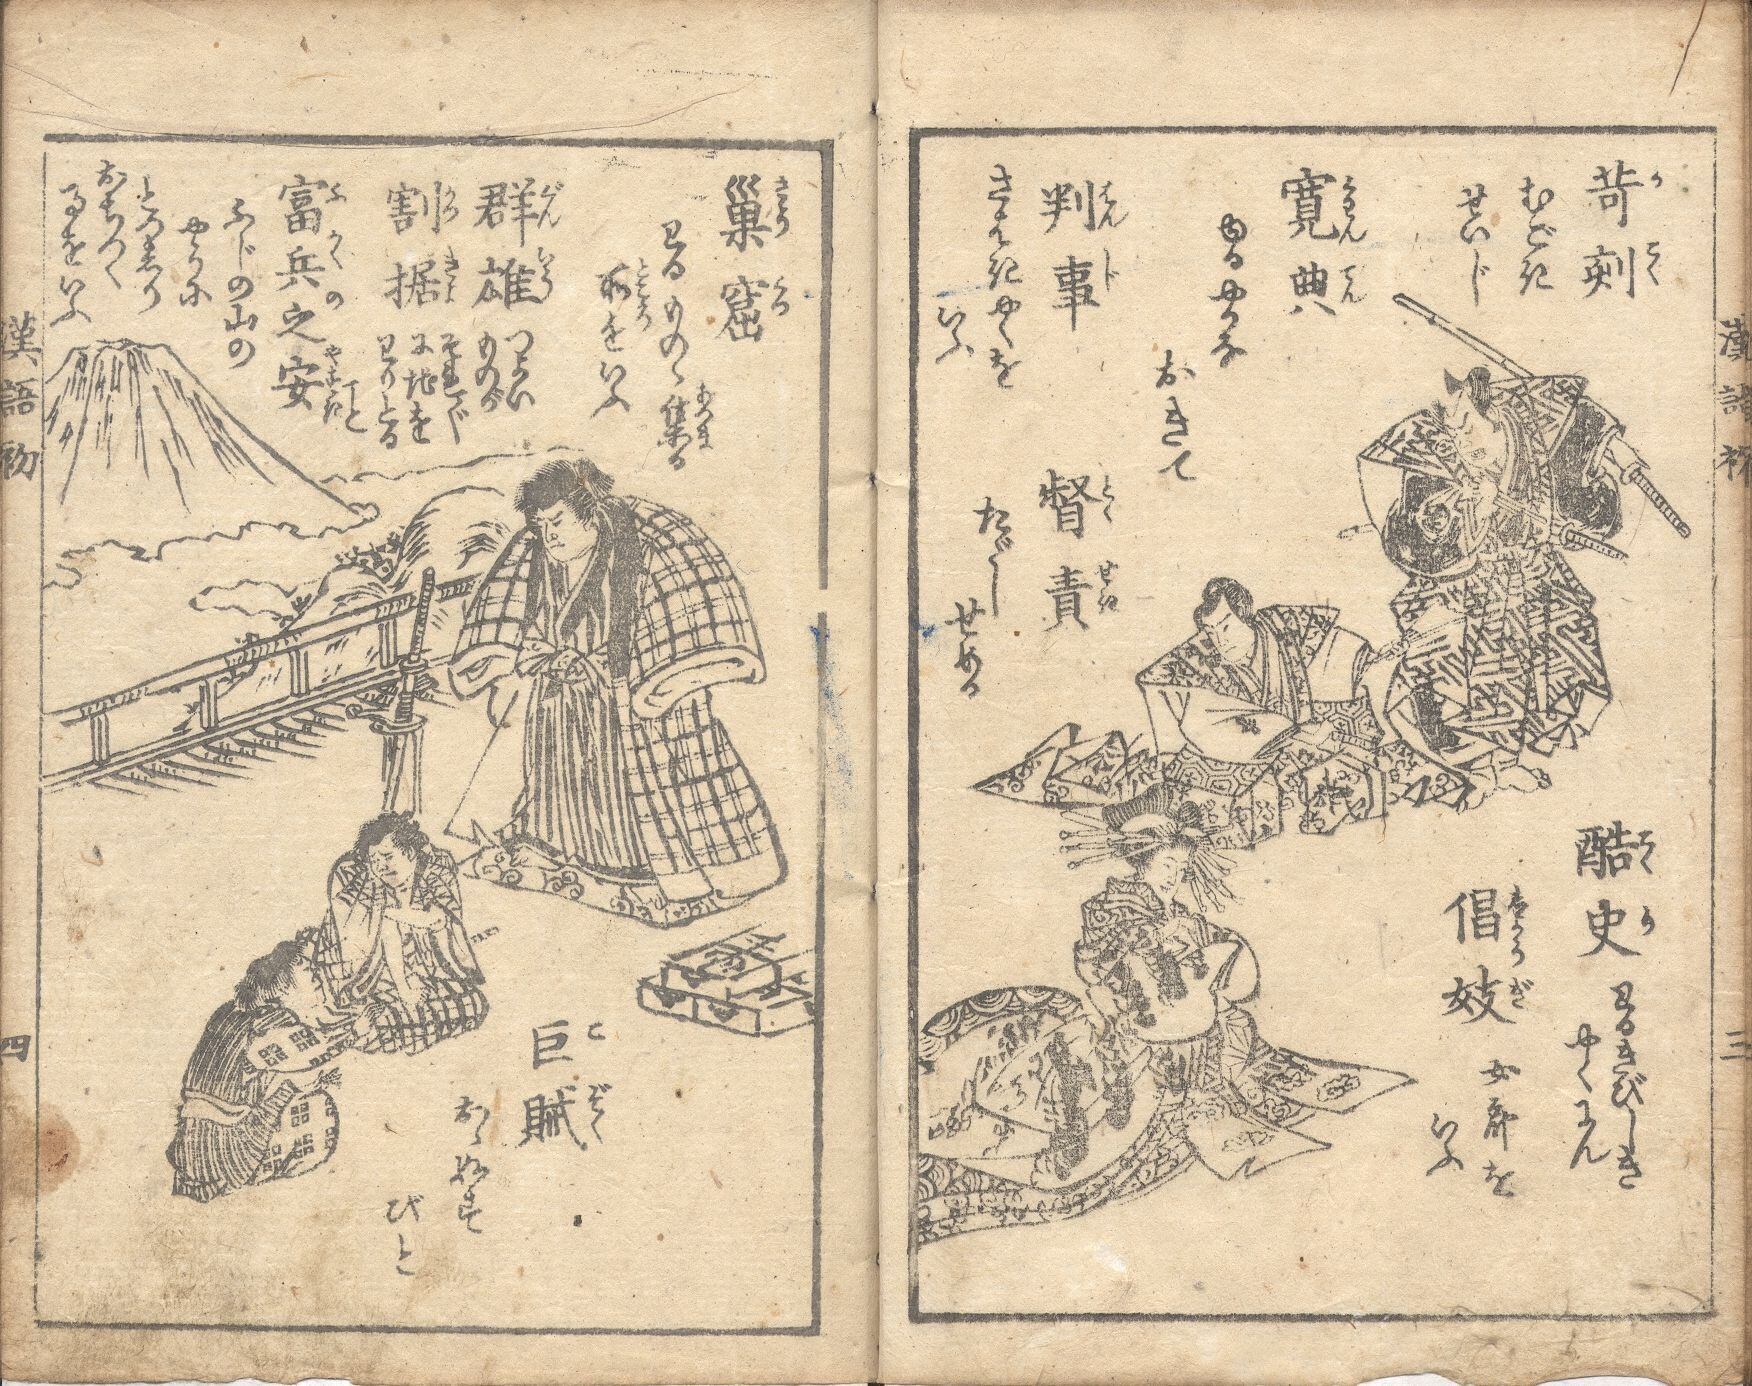 苛刻
かこく
むごき
せいじ
寛典
くわんてん
ゆるやかな
おきて
判事
はんじ
さばきやくを
いふ
督責
とくせき
たゞしせめる
酷吏
こくり
わるきびしき
やくにん
倡妓
しやうぎ
女郎を
いふ
三
巣窟
さうくつ
わるものゝ集る
あつま
所をいふ
ところ
群雄
ぐんいう
割据
かつきよ
つよい
ものが
それ〴〵
に地を
わりとる
富兵之安
ふがくのやすき
ふじの山の
やうに
どつしり
おちつく
事をいふ
巨賊
こぞく
おゝぬす
びと
漢語初
四